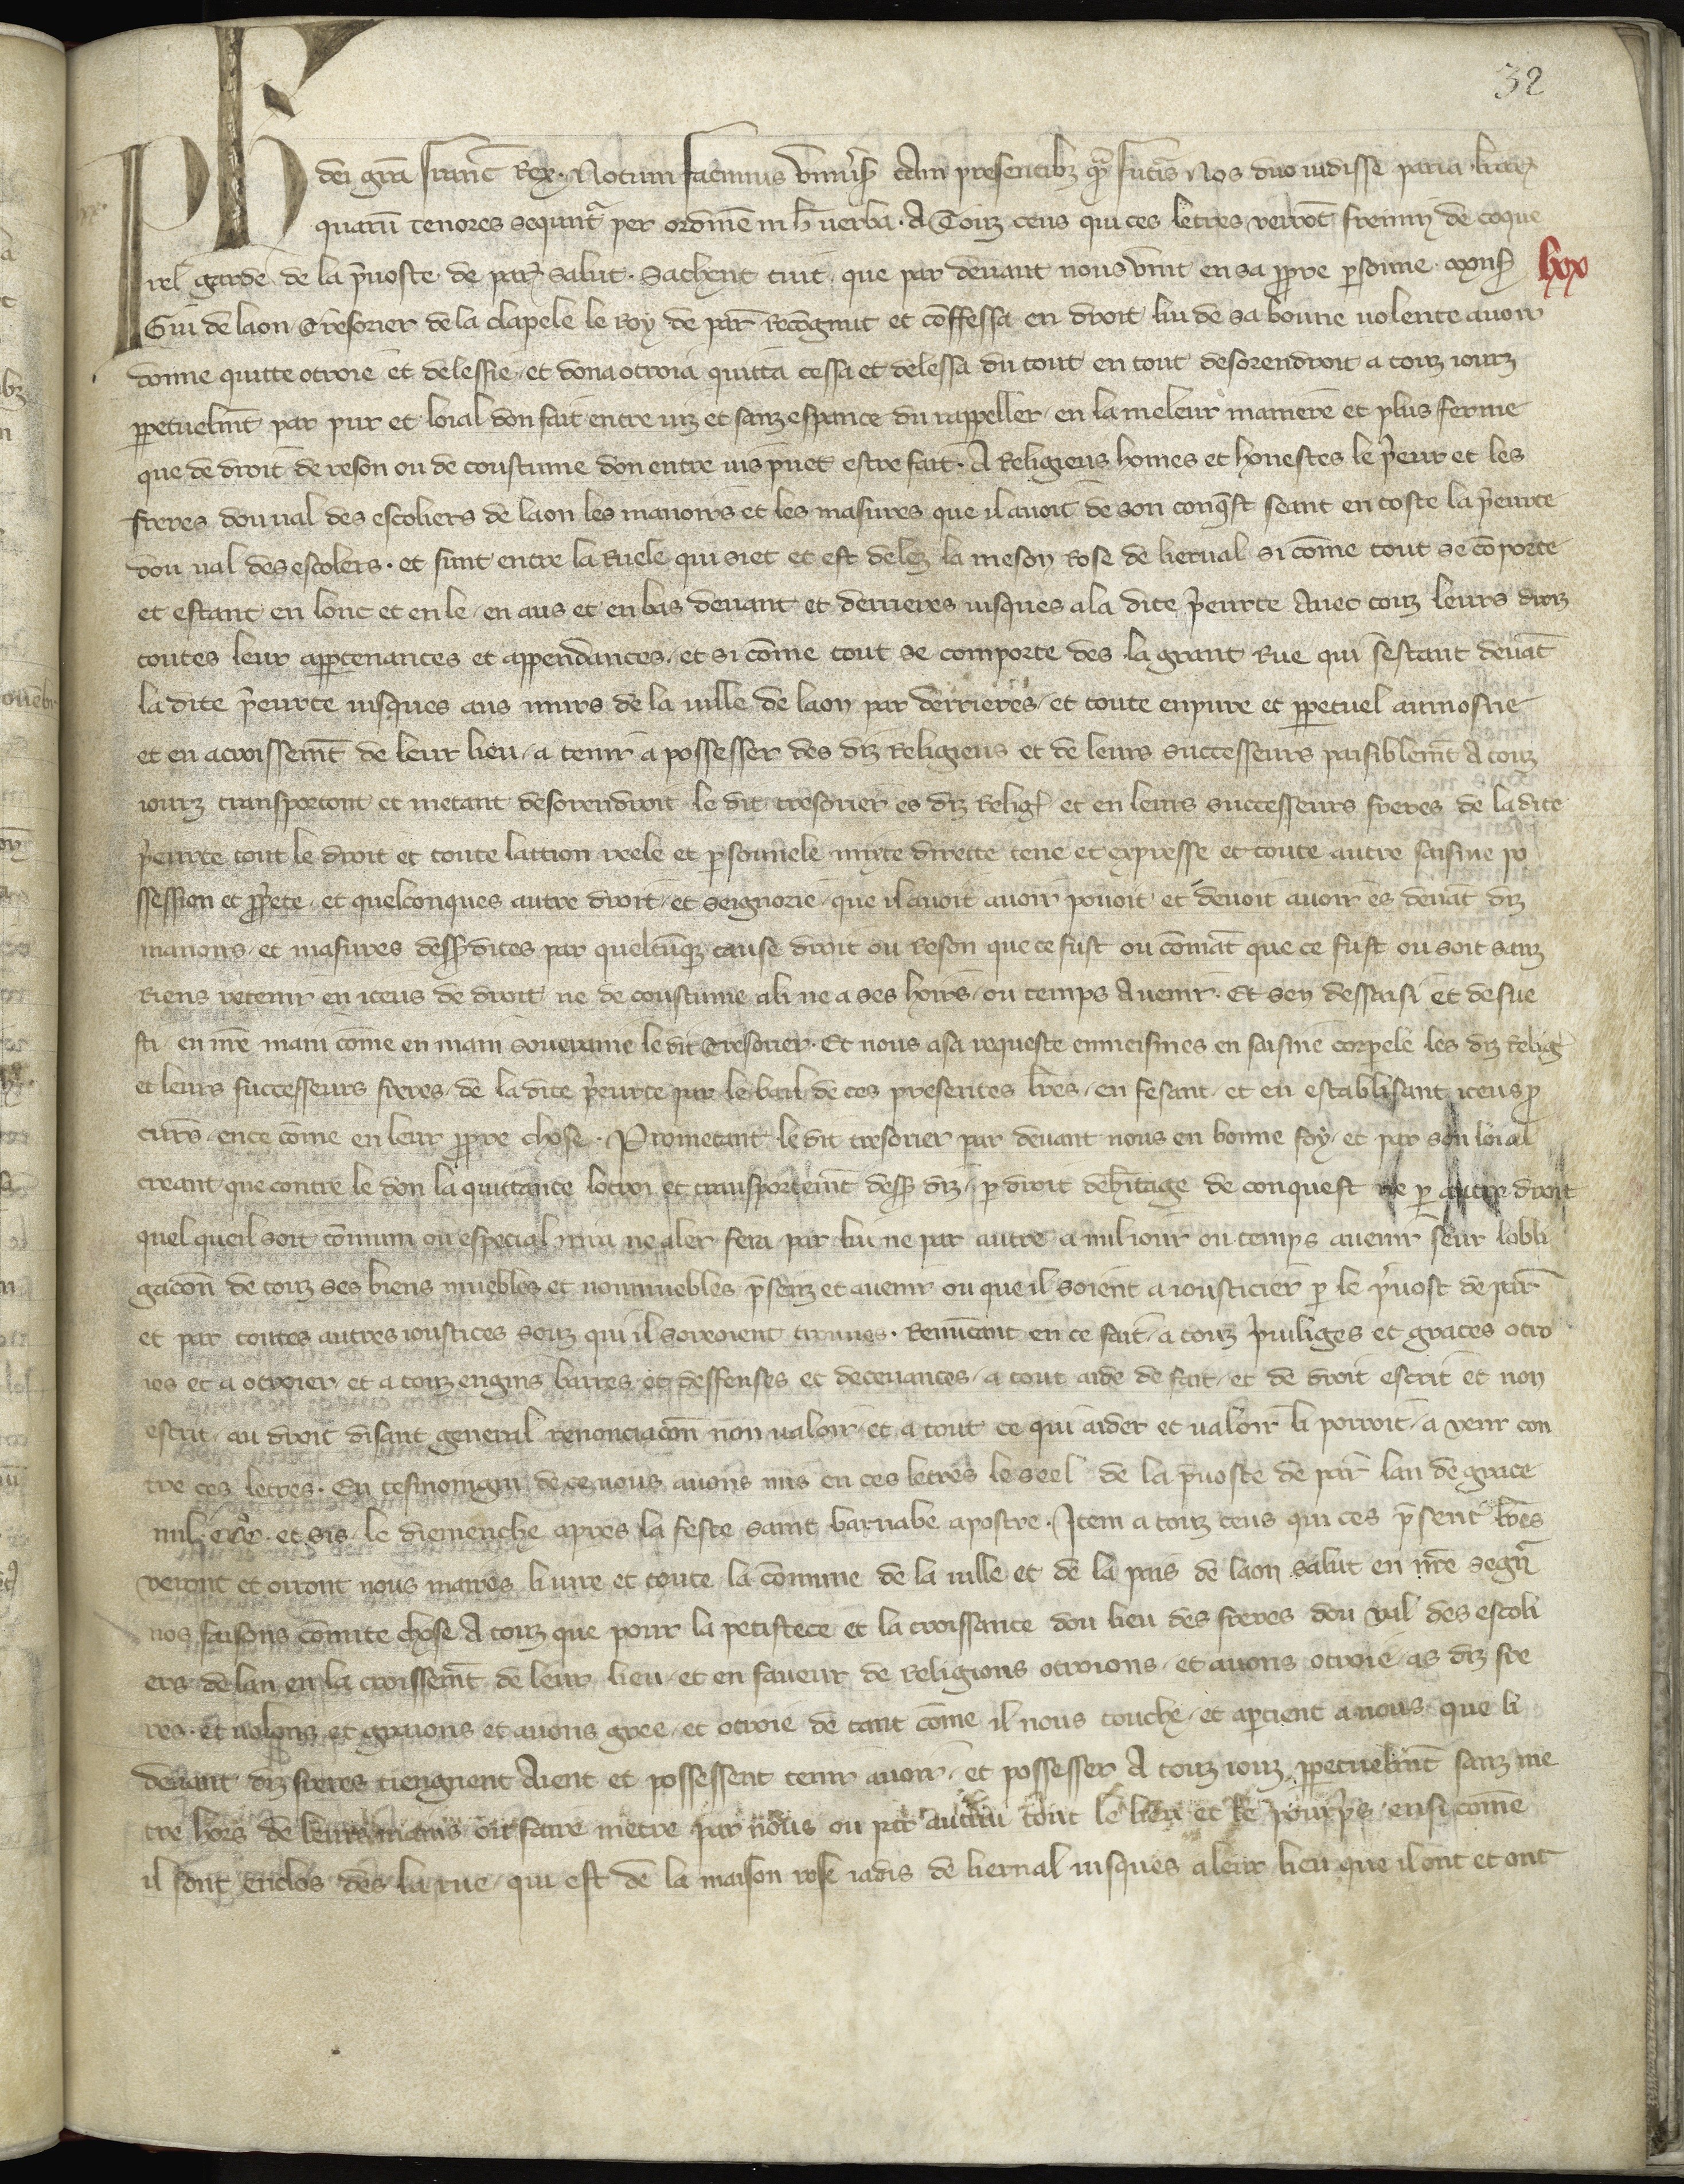 32
Ph dei gra franc Rex. Notum facimus vniuersis tam presentibz quam futuris Nos duo uidisse paria litterarum
quarum tenores sequntur per ordinem in hec uerba. A Touz ceus qui ces letres verront fremin de coque
rel garde de la preuoste de paris salut. Sachent tuit que par deuant nous vint en sa propre personne
lxx
Gui de laon Tresorier de la chapele le Roy de paris Recognut et confessa en droit lui de sa bonne uolente auoir
donne quitte otroie et delessie et dona otroia quitta cessa et delessa du tout en tout desorendroit a touz iourz
perpetuelment par pur et loial don fait entre uiz et sanz esperance du rappeller en la meleur maniere et plus ferme
que de droit de reson ou de coustume don entre uis puet estre fait. A Religieus homes et honestes le prieur et les
freres dou ual des escoliers de laon les manoirs et les masures que il auoit de son conquest seant en coste la prieurte
dou ual des escolers. et sunt entre la Ruele qui siet et est delez la meson Rose de bernal si come tout se comporte
et estant en lonc et en le en aus et en bas deuant et derrieres iusques a la dite prieurte Auec touz leurs droiz
toutes leur appartenances et appendances et si come tout se comporte des la grant Rue qui sestant deuant
la dite prieurte iusques aus murs de la uille de laon par derrieres et toute en pure et perpetuel aumosne
et en acroissement de leur lieu a tenir a possesser des diz Religieus et de leurs successeurs paisiblement A touz
iourz transportant et metant desorendroit le dit tresorier es diz Religieus et en leurs successeurs freres de la dite
prieurte tout le droit et toute laction reele et personnele mixte directe tene et expresse et toute autre saisine po
ssession et propriete et quelconques autre droit et seignorie que il auoit auoir pouoit et deuoit auoir es deuant diz
manoirs et masures desus dites par quelcunque cause droit ou Reson que ce fust ou comant que ce fust ou soit sanz
Riens retenir en iceus de droit ne de coustume a li ne a ses hoirs ou temps Auenir. Et sen dessaisi et desue
sti en nostre main come en main souueraine le dit Tresorier. Et nous a sa requeste enmeismes en saisine corpele les diz Religieus
et leurs successeurs freres de la dite prieurte par le bail de ces presentes lettres en fesant et en establisant iceus pro
curs en ce come en leur propre chose. Prometant le dit tresorier par deuant nous en bonne foy et par son loial
creant que contre le don la quittance lotroi et transportement desus diz par droit deheritage de conquest ne par autre droit
quel queil soit commun ou especial nira ne aler fera par lui ne par autre a nul iour ou temps auenir seur lobli
gacion de touz ses biens muebles et nonmuebles presenz et auenir ou que il soient a iousticier par le preuost de paris
et par toutes autres ioustices souz qui il seroient trouues. Renuncant en ce fait a touz priuiliges et graces otro
ies et a otroier et a touz engins barres et deffenses et deceuances a tout aide de fait et de droit escrit et non
escrit au droit disant general renonciacion non ualoir et a tout ce qui aider et ualoir li porroit a venir con
tre ces letres. En tesmoingn de ce nous auons mis en ces letres le seel de la preuoste de paris lan de grace
mil ccc et sis le diemenche apres la feste saint barnabe apostre. Item a touz ceus qui ces present lettres
veront et orront nous maires li iure et toute la commune de la uille et de la pais de laon salut en nostre segneur
nos faisons connute chose A touz que pour la petistece et la croissance dou lieu des freres dou val des escoli
ers de lan en la croissement de leur lieu et en faueur de Religions otroions et auons otroie as diz fre
res. et uolons et greuons et auons gree et otroie de tant come il nous touche et apertient a nous que li
deuant diz freres tiengnent Aient et possessent tenir auoir et possesser A touz iourz perpetuelment sanz me
tre hors de leurs mains ou faire metre par nous ou par autrui tout le lieu et le pourpris ensi come
il sont enclos des la rue qui est de la maison rose iadis de bernal iusques a leur lieu que il ont et ont